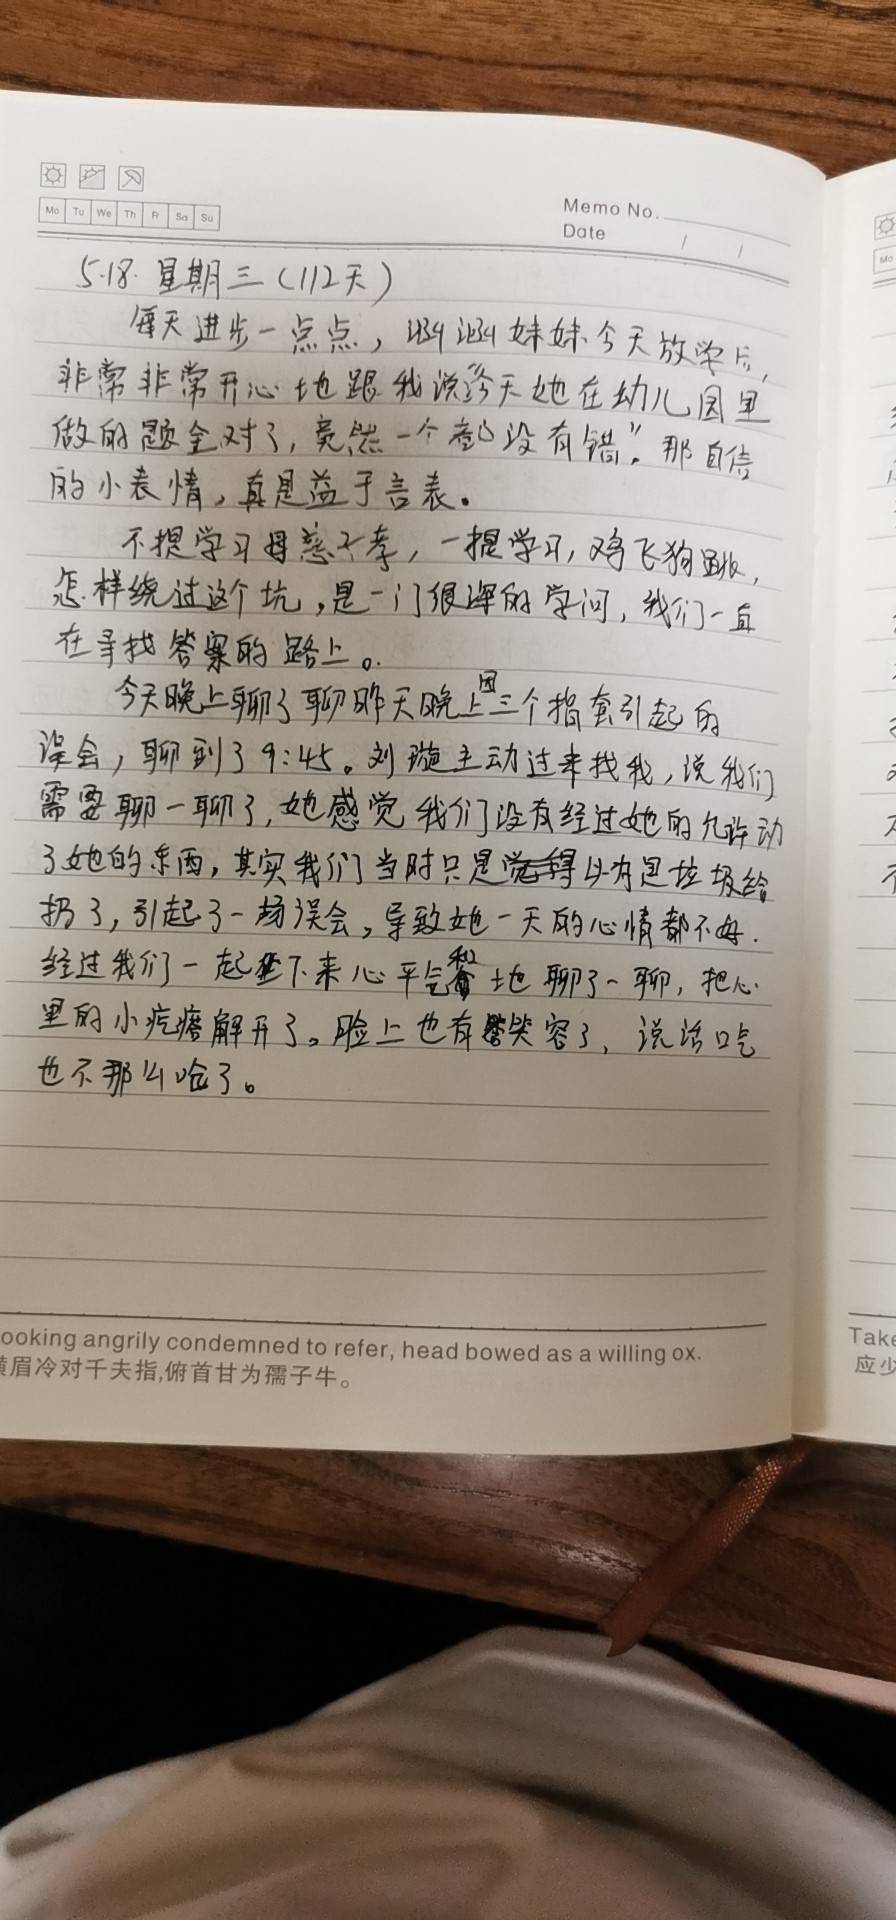 Mo Tu We Th Fr Sa Su
Memo No.
Date / /
5.18. 星期三(112天)
每天进步一点点, 妹妹今天放学后,
非常非常开心地跟我说“今天她在幼儿园里
做的题全对了, 竟然一个都没有错”。那自信
的小表情, 真是益于言表。
不提学习母慈子孝, 一提学习, 鸡飞狗跳,
怎样绕过这个坑, 是一门很深的学问, 我们一直
在寻找答案的路上。
今天晚上聊了聊昨天晚上因三个指套引起的
误会, 聊到了9:45。刘璇主动过来找我, 说我们
需要聊一聊了, 她感觉我们没有经过她的允许动
了她的东西, 其实我们当时只是以为是垃圾给
扔了, 引起了一场误会。导致她一天的心情都不好.
经过我们一起坐下来心平气和地聊了一聊, 把心
里的小疙瘩解开了。脸上也有笑容了, 说话口气
也不那么呛了。
ooking angrily condemned to refer, head bowed as a willing ox.
横眉冷对千夫指,俯首甘为孺子牛。
Mo
Take
应少